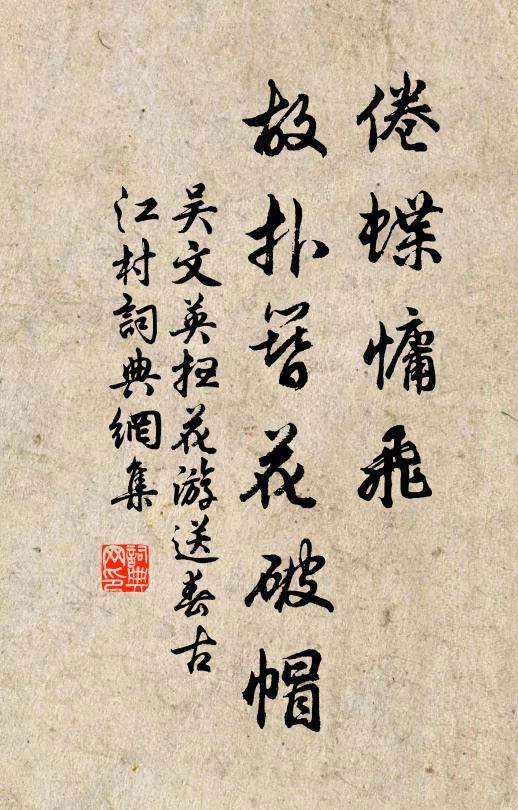 倦蝶慵飛
故扑簪花破帽
吴文英扭花游送春古
江村詞典網集
詞典
网印